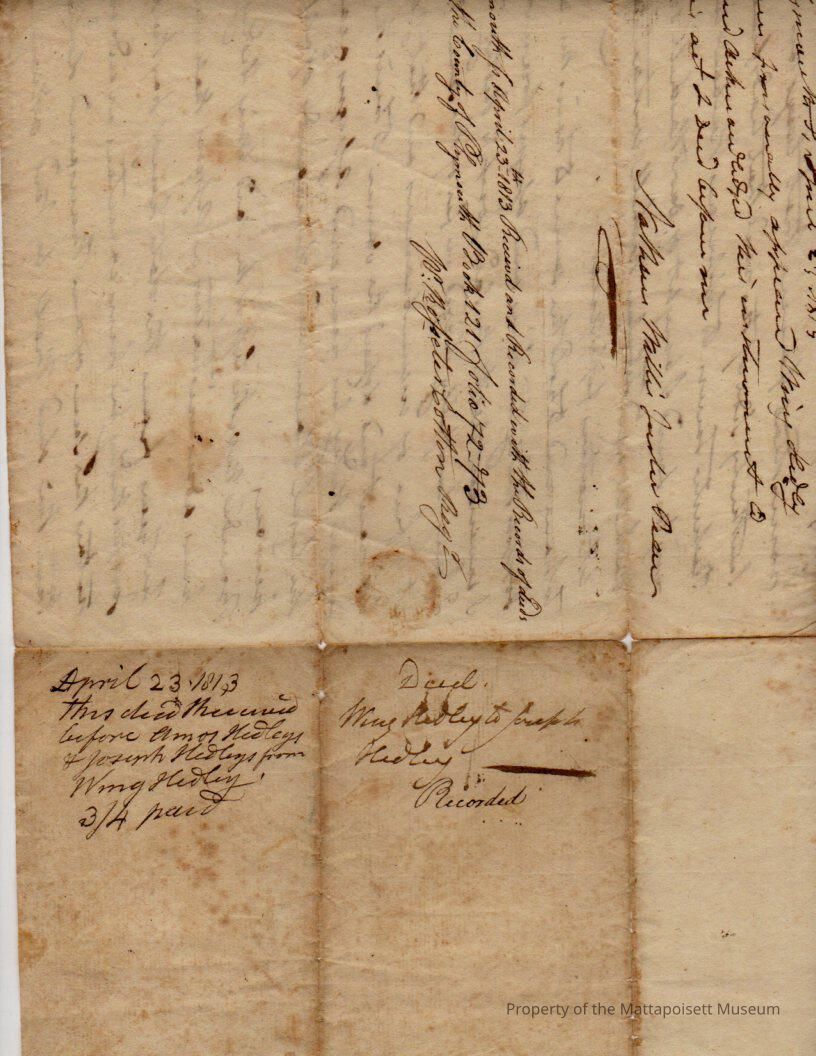 Plymouth ss, April 23, 1813
personally appeared Wing Hedley
and acknowledged this instrument to
act & Deed before me
Nathan Willis Justice Peace
Plymouth ss April 23th 1813 Received and Recorded with the Records of deeds
the County of Plymouth Book 121 folio 72-73
pr. Rosseter Cotton Regr
April 23. 1813
this deed Received
before Amos Hedleys
& Joseph Hedleys from
Wing Hedley
3/4 paid
Deed.
Wing Hedley to Joseph
Hedley
Recorded
Property of the Mattapoisett Museum